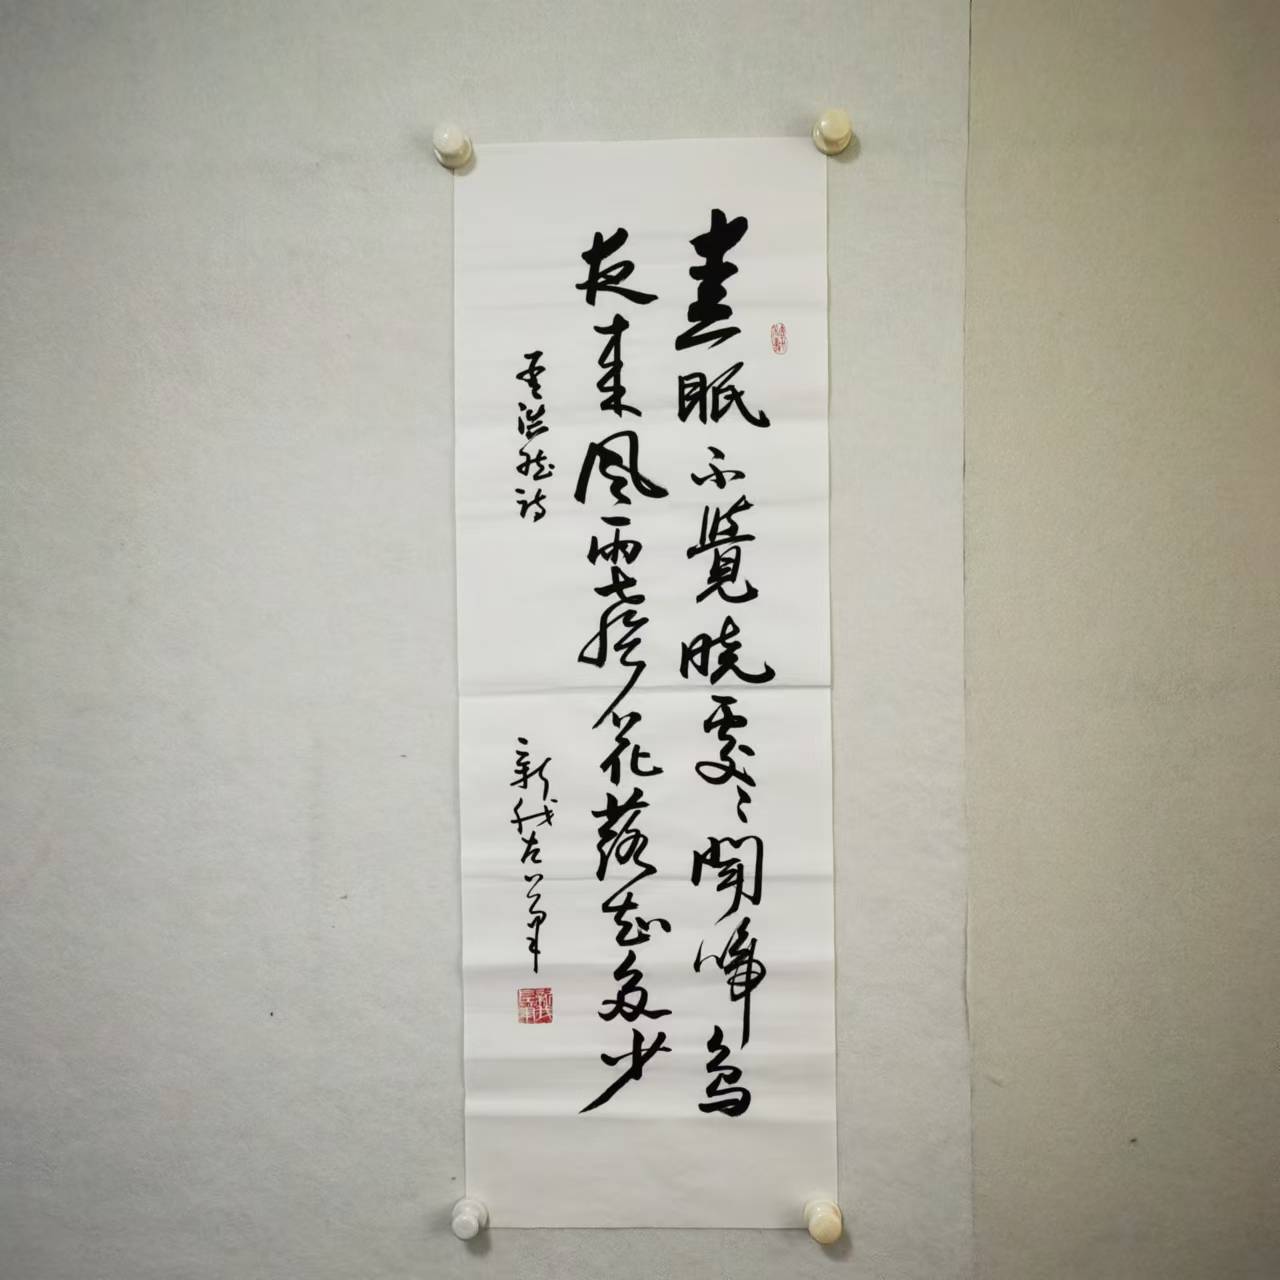 春眠不覺曉處〻聞啼鳥
夜來風雨聲花落知多少
孟浩然詩
新我左筆